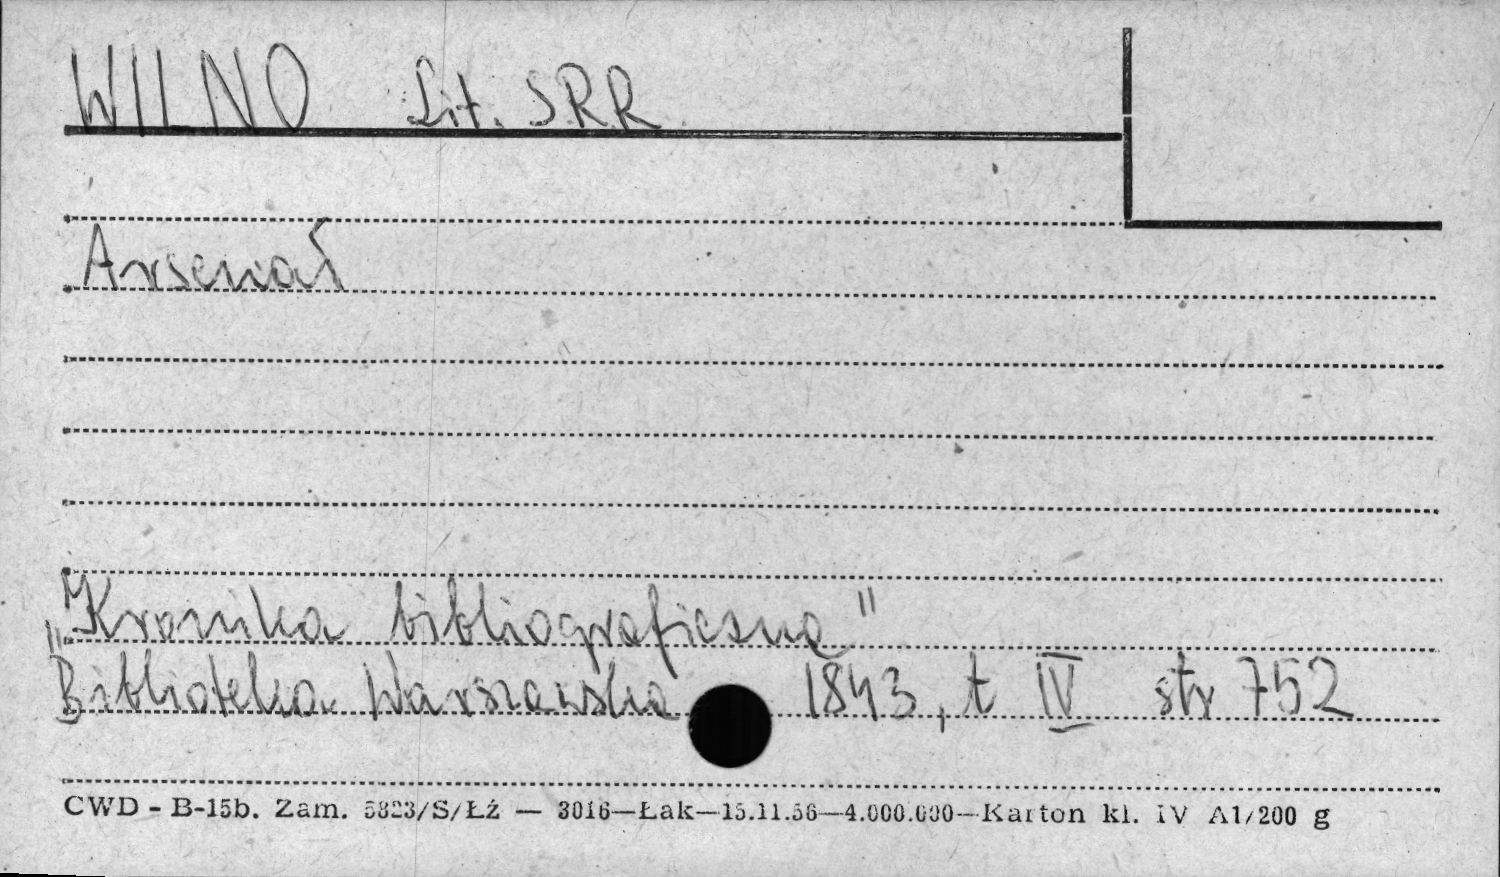 WILNO Lit. S.R.R.
Arsenał
„Kronika bibliograficzna"
Biblioteka Warszawska 1843, t IV str 752
CWD - B-15b. Zam. 5823/S/Łź — 3016—Łak—15.11.56—4.000.000—Karton kl. IV A1/200 g